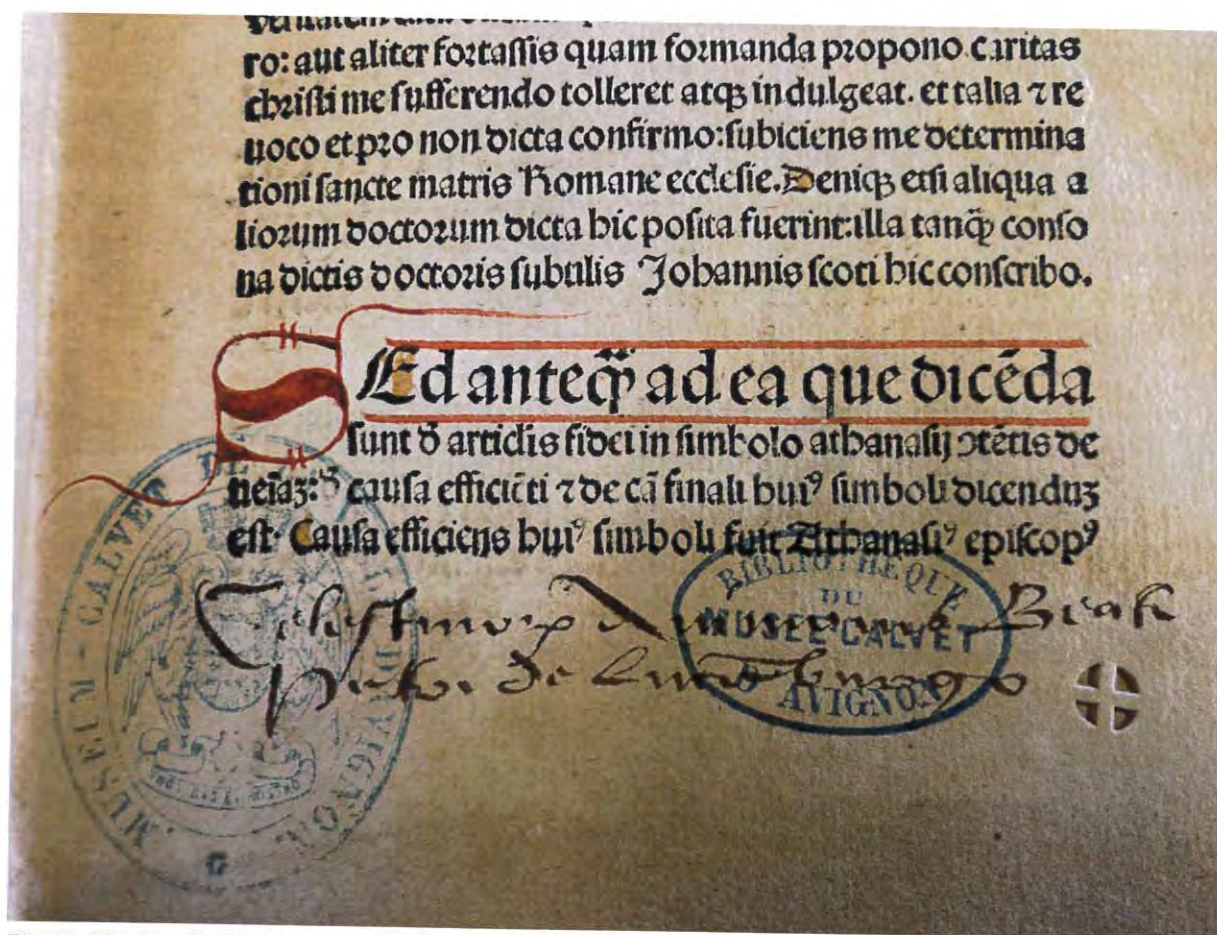 ro: aut aliter fortassis quam formanda propono caritas
christi me sufferendo tolleret atqꝫ indulgeat. et talia ⁊ re
uoco et pro non dicta confirmo: subiciens me determina
tioni sancte matris Romane ecclesie. Deniqꝫ etsi aliqua a
liorum doctorum dicta hic posita fuerint: illa tanqꝫ̄ conso
na dictis doctoris subtilis Johannis scoti hic conscribo.
SEd anteqꝫ̄ ad ea que dicēda
sunt đ articlis fidei in simbolo athanasij ꝯtētis de
causa efficiēti ⁊ de cā finali huiꝰ simboli dicenduꝫ
est. Causa efficiens huiꝰ simboli fuit Athanasiꝰ episcopꝰ
Celestinorꝝ Beati
Petri de
MUSEUM - CALVET
D'AVIGNON
BIBLIOTHEQUE
DU
MUSEE CALVET
D'AVIGNON